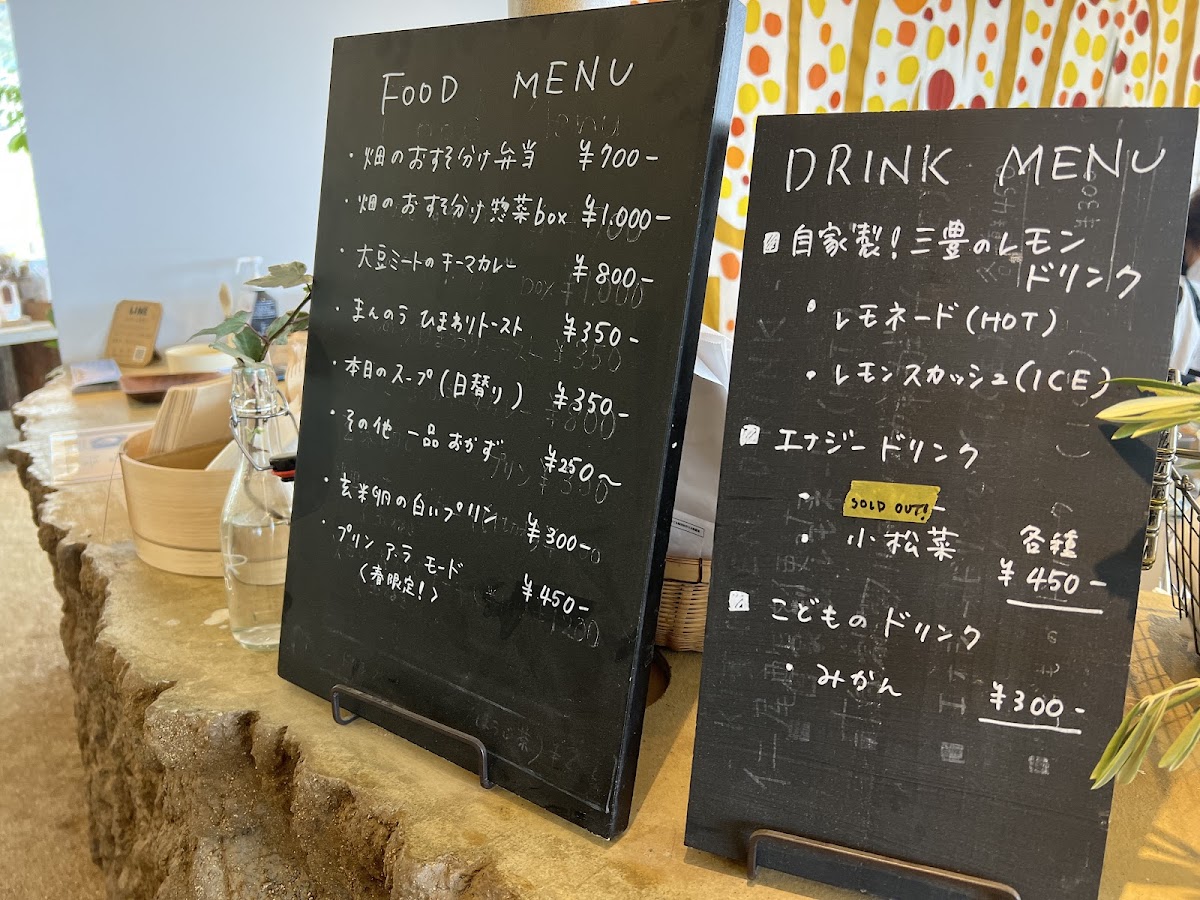 FOOD MENU
・畑のおすそ分け弁当 ¥700-
・畑のおすそ分け惣菜box ¥1.000-
・大豆ミートのキーマカレー ¥800-
・まんのう ひまわりトースト ¥350-
・本日のスープ(日替り) ¥350-
・その他 一品 おかず ¥250〜
・玄米卵の白いプリン ¥300-
・プリン ア・ラ モード ¥450-
〈春限定!〉
DRINK MENU
自家製!三豊のレモン
ドリンク
・レモネード(HOT)
・レモンスカッシュ(ICE)
エナジードリンク
・SOLD OUT!
・小松菜 各種
¥450-
こどものドリンク
・みかん ¥300-
LINE